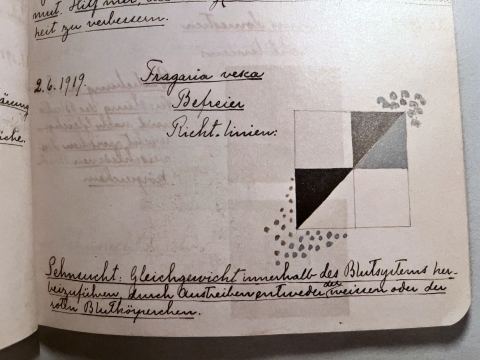 mut. Hilf mir,
heit zu verbessern.
2.6.1919. Fragaria vesca
Befreier
Richt-linien:
Sehnsucht: Gleichgewicht innerhalb des Blutsystems her-
beizuführen, durch Austreiben entweder der weissen oder der
roten Blutkörperchen.